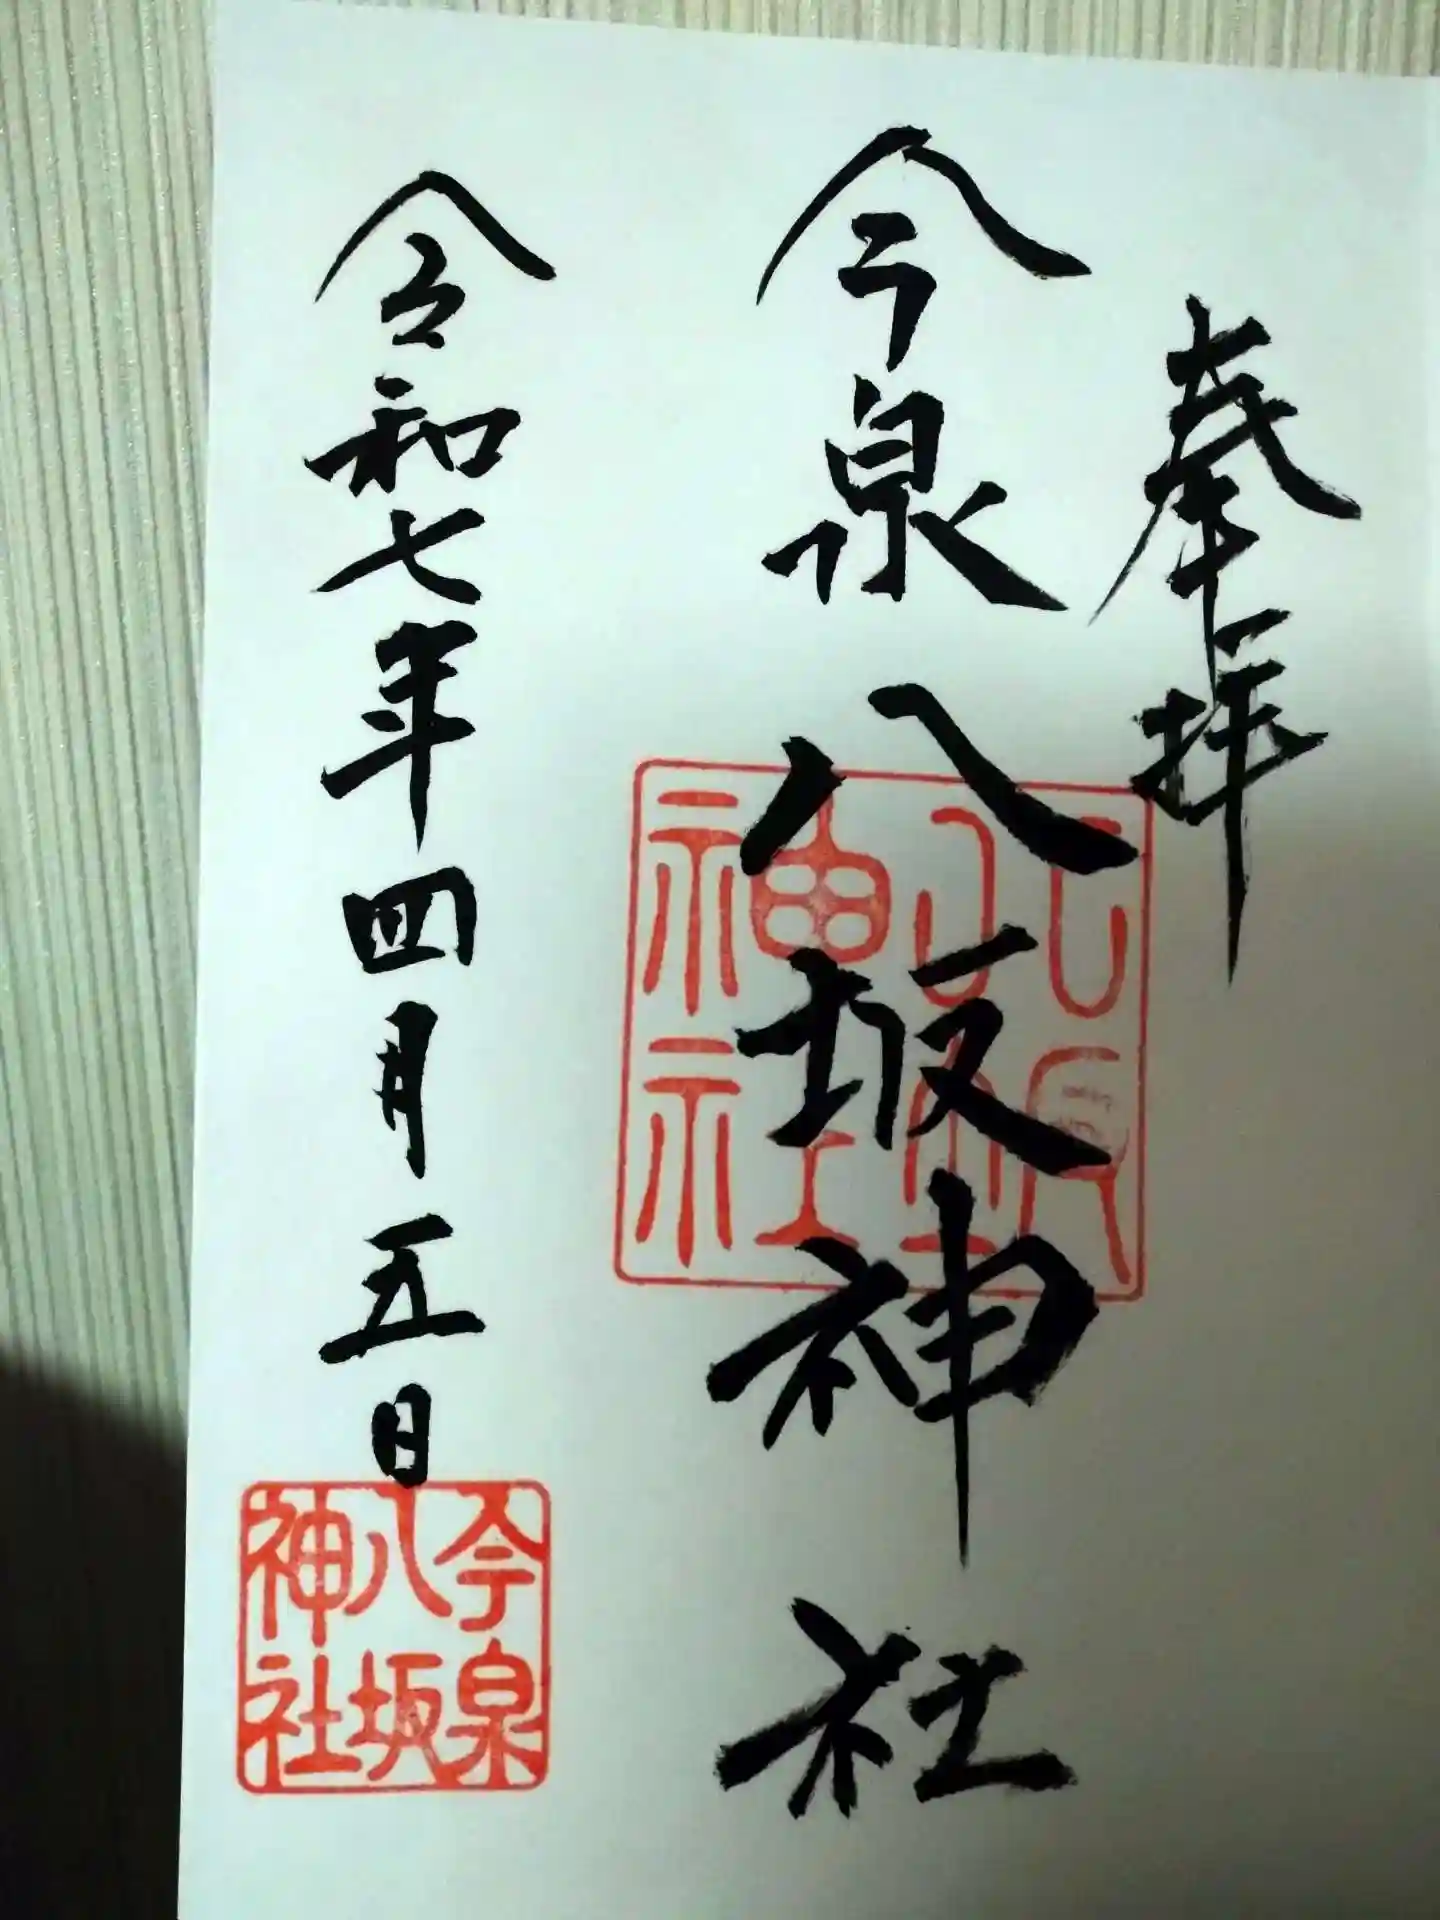 奉拝
今泉八坂神社
令和七年四月五日
八坂神社
今泉八坂神社